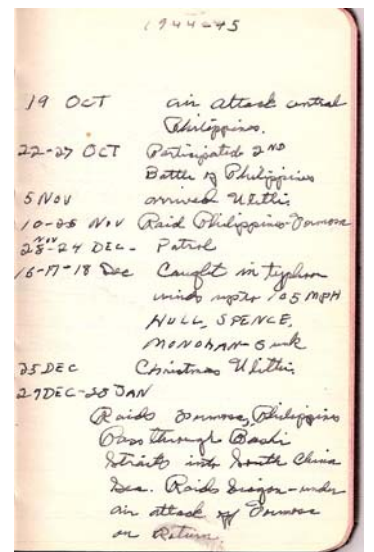 1944-45
19 OCT air attack central
Philippines.
22-27 OCT Participated 2ND
Battle of Philippines
5 NOV arrived Ulithi
10-25 NOV Raid Philippines-Formosa
28 NOV-24 DEC- Patrol
16-17-18 Dec Caught in typhoon
winds upto 105 MPH
HULL, SPENCE,
MONOHAN-Sunk
25 DEC Christmas Ulithi
29 DEC-28 JAN
Raids Formosa, Philippine
Pass through Bashi
Straits into South China
Sea. Raids Siagon-under
air attack off Formosa
on Return.